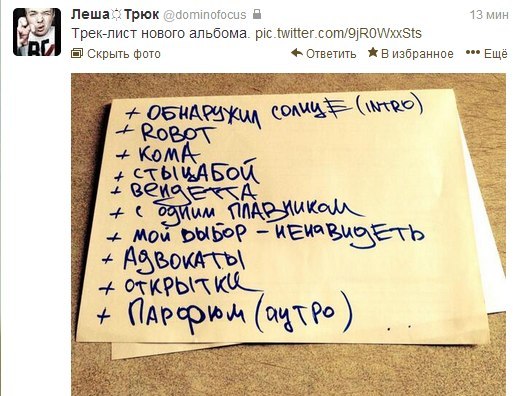 Леша☼Трюк @dominofocus 13 мин
Трек-лист нового альбома. pic.twitter.com/9jR0WxxSts
Скрыть фото Ответить В избранное Ещё
+ ОБНАРУЖИЛ СОЛНЦЕ (INTRO)
+ ROBOT
+ КОМА
+ СТЫЦАБОЙ
+ ВЕНДЕТТА
+ С ОДНИМ ПЛАВНИКОМ
+ МОЙ ВЫБОР - НЕНАВИДЕТЬ
+ АДВОКАТЫ
+ ОТКРЫТКИ
+ ПАРФЮМ (АУТРО)